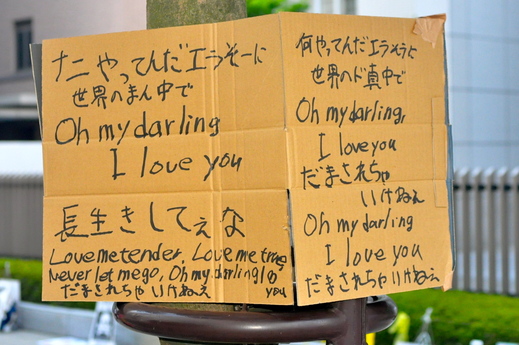 ナニやってんだエラそーに
世界のまん中で
Oh my darling
I love you
長生きしてぇな
Love me tender, Love me true
Never let me go, Oh my darling I
you
だまされちゃいけねぇ
何やってんだエラそうに
世界のド真中で
Oh my darling,
I love you
だまされちゃ
いけねぇ
Oh my darling
I love you
だまされちゃいけねぇ